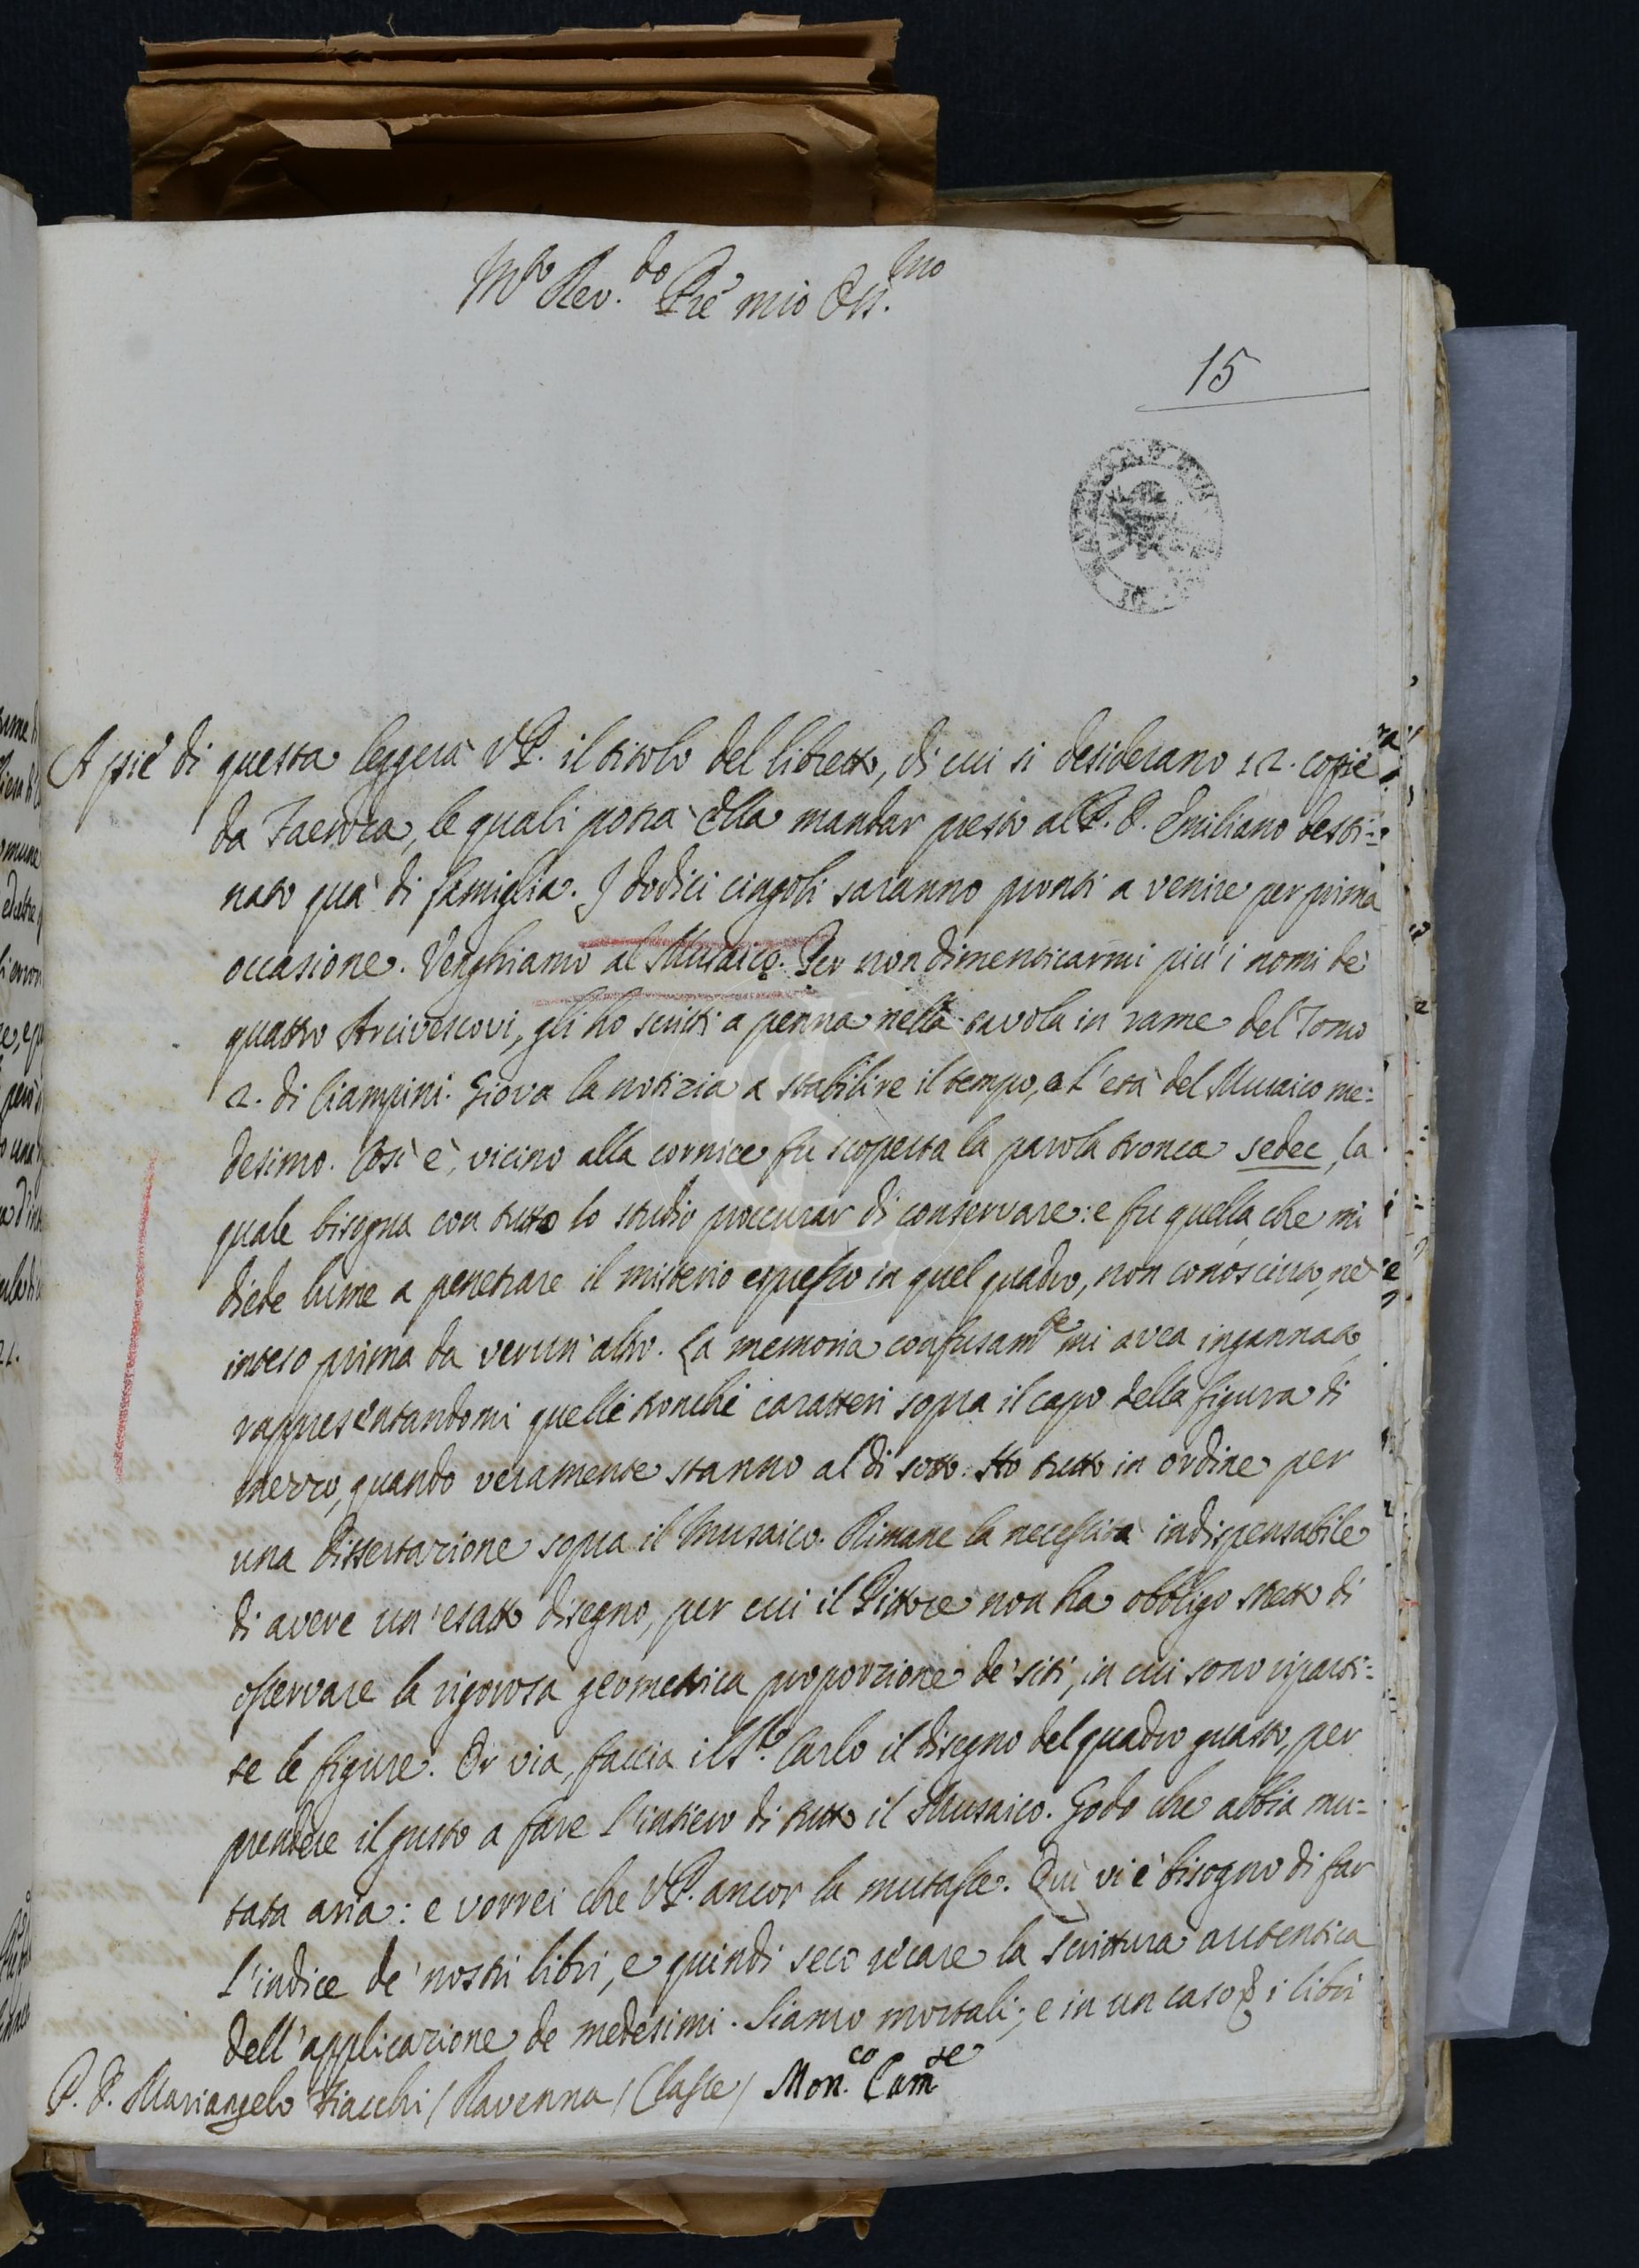 M.to Rev.do Pre mio Oss.mo
15
A piè di questa leggerà V.P. il titolo del libretto, di cui si desiderano 12. copie
da Faenza, le quali potrà Ella mandar presto al P. D. Emiliano desti=
nato quà di famiglia. I dodici cingoli saranno pronti a venire per prima
occasione. Venghiamo al Musaico. Per non dimenticarmi più i nomi de'
quattro Arcivescovi, gli ho scritti a penna nella tavola in rame del Tomo
2. di Ciampini. Giova la notizia a stabilire il tempo, e l'età del Musaico me=
desimo. Così è, vicino alla cornice fu scoperta la parola tronca sedec, la
quale bisogna con tutto lo studio proccurar di conservare: e fu quella, che mi
diede lume a penetrare il misterio espresso in quel quadro, non conosciuto, nè
inteso prima da verun' altro. La memoria confusam.te mi avea ingannato,
rappresentandomi quelli tronchi caratteri sopra il capo della figura di
mezzo, quando veramente stanno al di sotto. Ho tutto in ordine per
una Dissertazione sopra il Musaico. Rimane la necessità indispensabile
di avere un' esatto disegno, per cui il Pittore non ha obbligo stretto di
osservare la rigorosa geometrica proporzione de' siti, in cui sono riparti=
te le figure. Or via, faccia il Sr. Carlo il disegno del quadro guasto, per
prendere il gusto a fare l'intiero di tutto il Musaico. Godo che abbia mu=
tata aria: e vorrei che V.P. ancor la mutasse. Quì vi è bisogno di far
l'indice de' nostri libri, e quindi seco recare la scrittura autentica
dell'applicazione de medesimi. Siamo mortali; e in un caso i libri
P. D. Mariangelo Fiacchi / Ravenna / Classe / Mon.co Cam.se